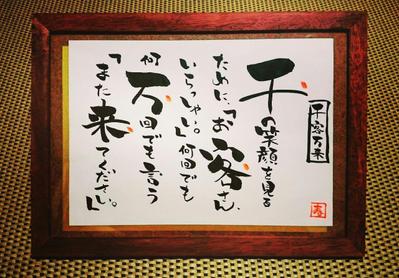 千客万来
千の笑顔を見る
ために、「お客さん、
いらっしゃい。」何回でも
何万回でも言う
「また来てください。」